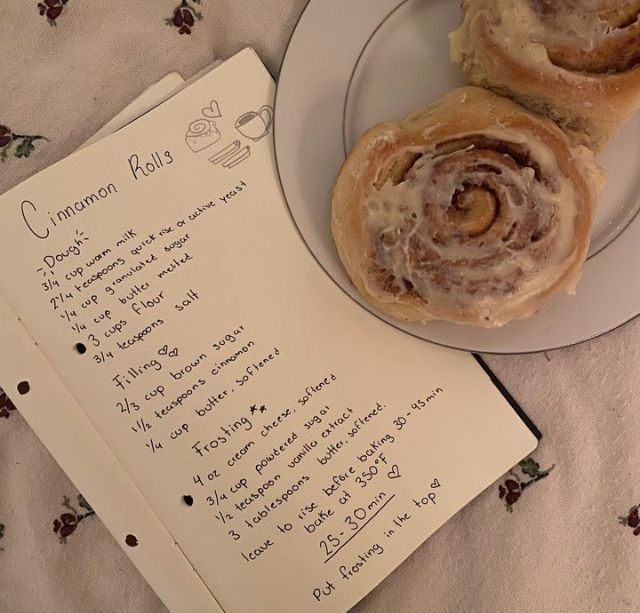 Cinnamon Rolls
-Dough-
3/4 cup warm milk
2 1/4 teaspoons quick rise or active yeast
1/4 cup granulated sugar
1/4 cup butter melted
3 cups flour
3/4 teaspoons salt
Filling
2/3 cup brown sugar
1 1/2 teaspoons cinnamon
1/4 cup butter, softened
Frosting
4 oz cream cheese, softened
3/4 cup powdered sugar
1/2 teaspoon vanilla extract
3 tablespoons butter, softened.
leave to rise before baking 30-45 min
bake at 350°F
25-30 min
Put frosting in the top